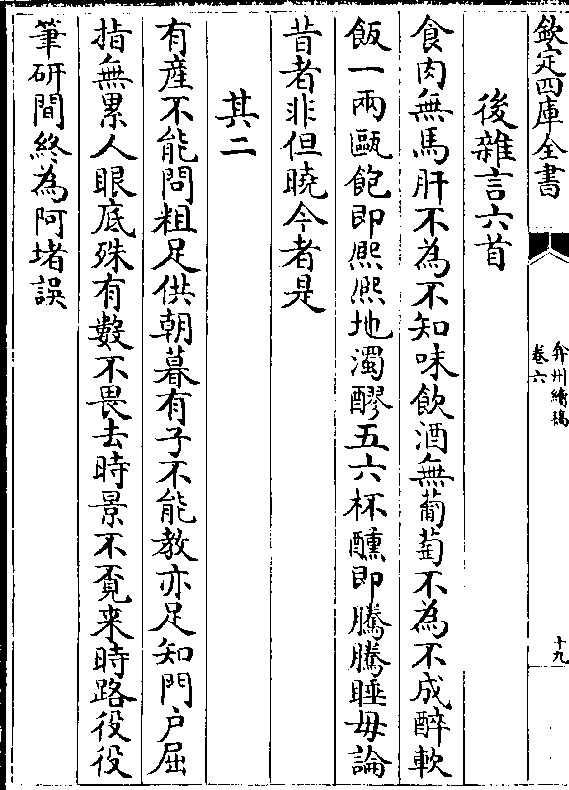 欽定四庫全書
弇州續稿
卷六
十九
後雜言六首
食肉無馬肝不為不知味飲酒無葡萄不為不成醉軟
飯一兩甌飽即熙熙地濁醪五六杯醺即騰騰睡毋論
昔者非但曉今者是
其二
有産不能問粗足供朝暮有子不能教亦足知門户屈
指無累人眼底殊有數不畏去時景不覔来時路役役
筆研間終為阿堵誤